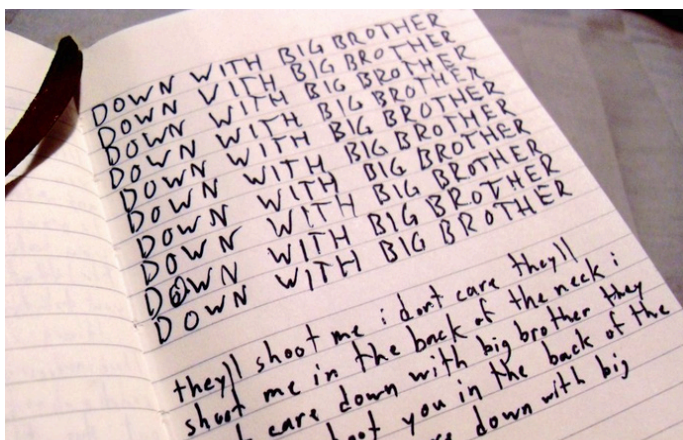 DOWN WITH BIG BROTHER
DOWN VITH BIG BROTHER
DOWN WITH BIG BROTHER
DOWN WITH BIG BROTHER
DOWN WITH BIG BROTHER
DOWN WITH BIG BROTHER
DOWN WITH BIG BROTHER
DOWN WITH BIG BROTHER
DOWN WITH BIG BROTHER
DOWN WITH BIG BROTHER
they'll shoot me i dont care they'll
shoot me in the back of the neck i
care down with big brother they
you in the back of the
down with big